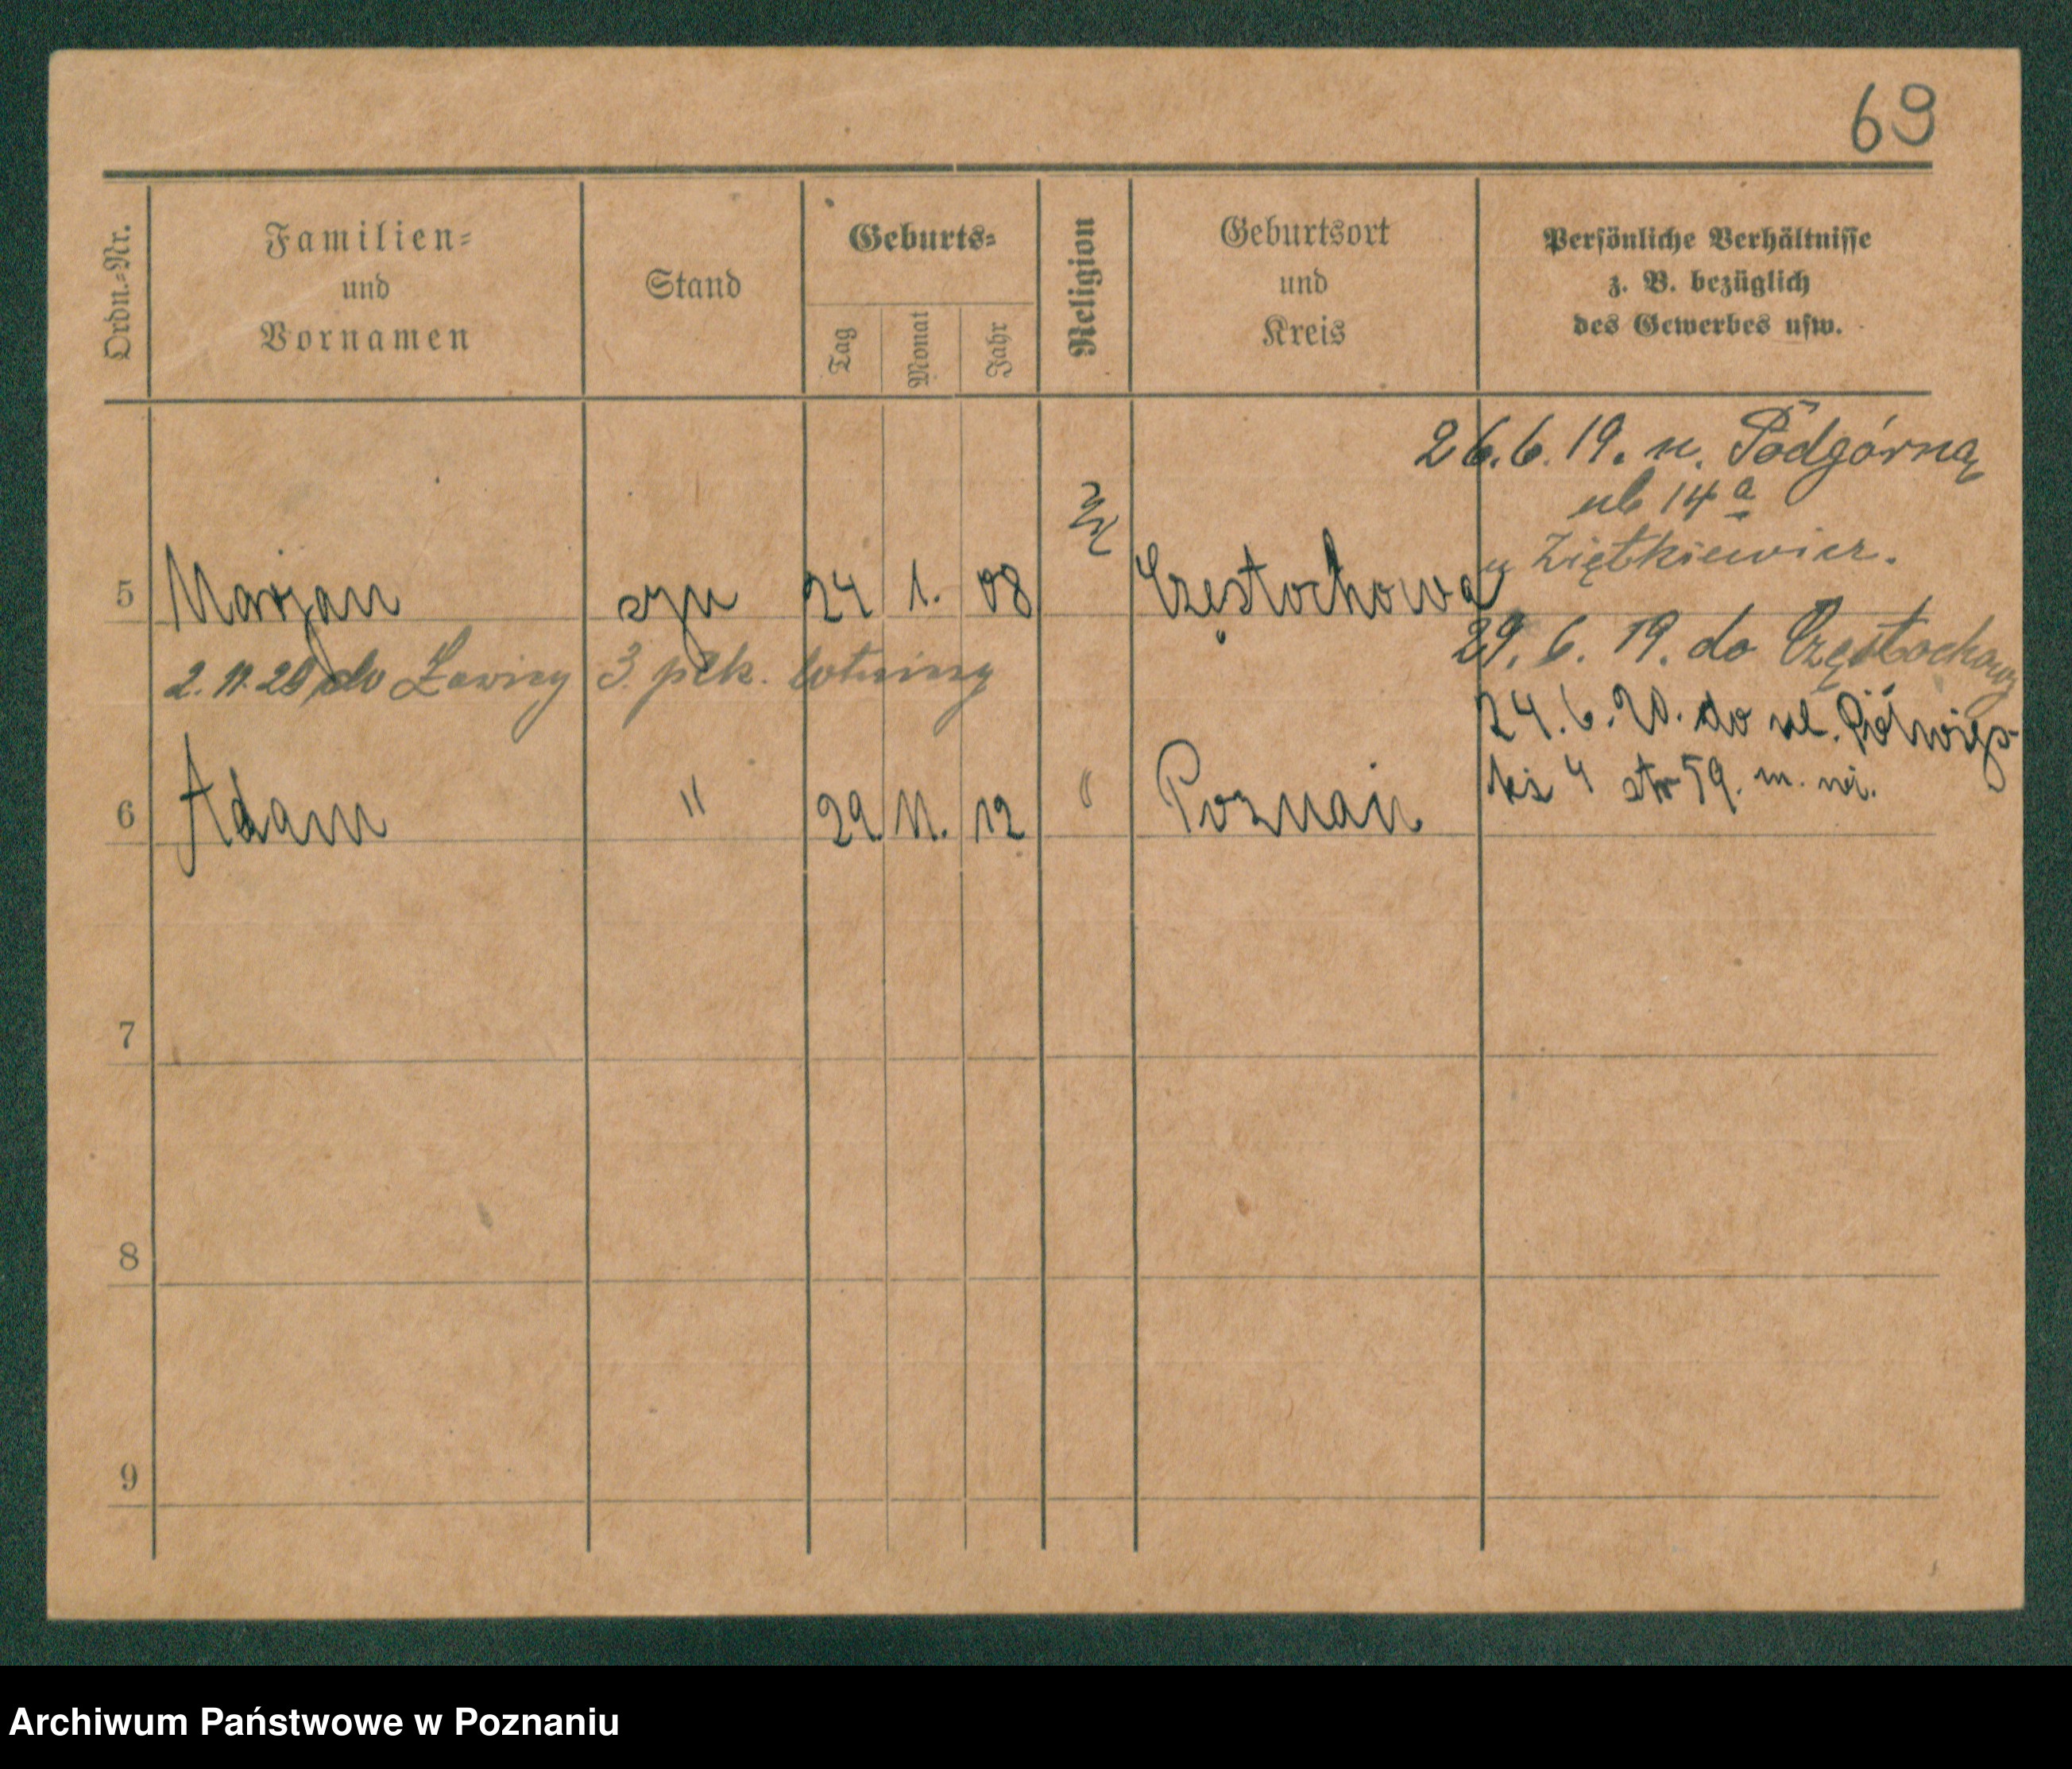 69
Ordn.=Nr.
Familien=
und
Vornamen
Stand
Geburts=
Tag
Monat
Jahr
Religion
Geburtsort
und
Kreis
Persönliche Verhältnisse
z. B. bezüglich
des Gewerbes usw.
26.6.19. n. Podgórną
ub 14a
u Ziętkiewicz.
5 Marjan syn 24 1. 08 Częstochowa
29. 6. 19. do Częstochowy
2. 11. 28 do Ławicy 3 płk. lotniczy
24. 6. 20. do ul. Półwiejs-
kiej 4 str 59. m. 
6 Adam " 29 11. 12 " Poznań
7
8
9
Archiwum Państwowe w Poznaniu